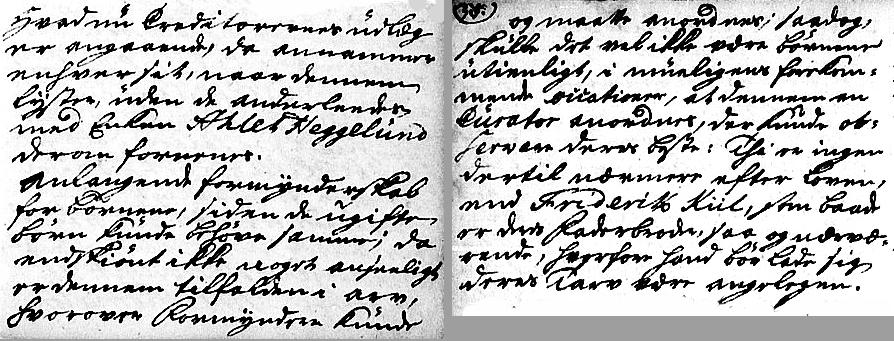 Hvad nu Creditorernes udlæg
er angaaende, da annammer
enhver sit, naar dennem
lyster, uden de anderleedes
med Enken Ahlet Heggelund
derom forrenes.
Anlangende formynderskab
for børnene, siden de ugifte
børn kunde behøve samme; da
endskiønt ikke noget anseeligt
er dennem tilfalden i arv,
hvorover Formyndere kunde
(38.)
og maatte anordnes; saadog,
skulle det vel ikke være børnene
utienligt, i mueligens forekom-
mende occationer, at dennem en
Curator anordnes, der kunde ob-
servere deres beste: Thi er ingen
dertil nærmere efter loven,
end Friderich Kiil, som baade
er deres Faderbroder, saa og nærvæ-
rende, hvorfore hand bør lade sig
deres Tarv være angelegen.